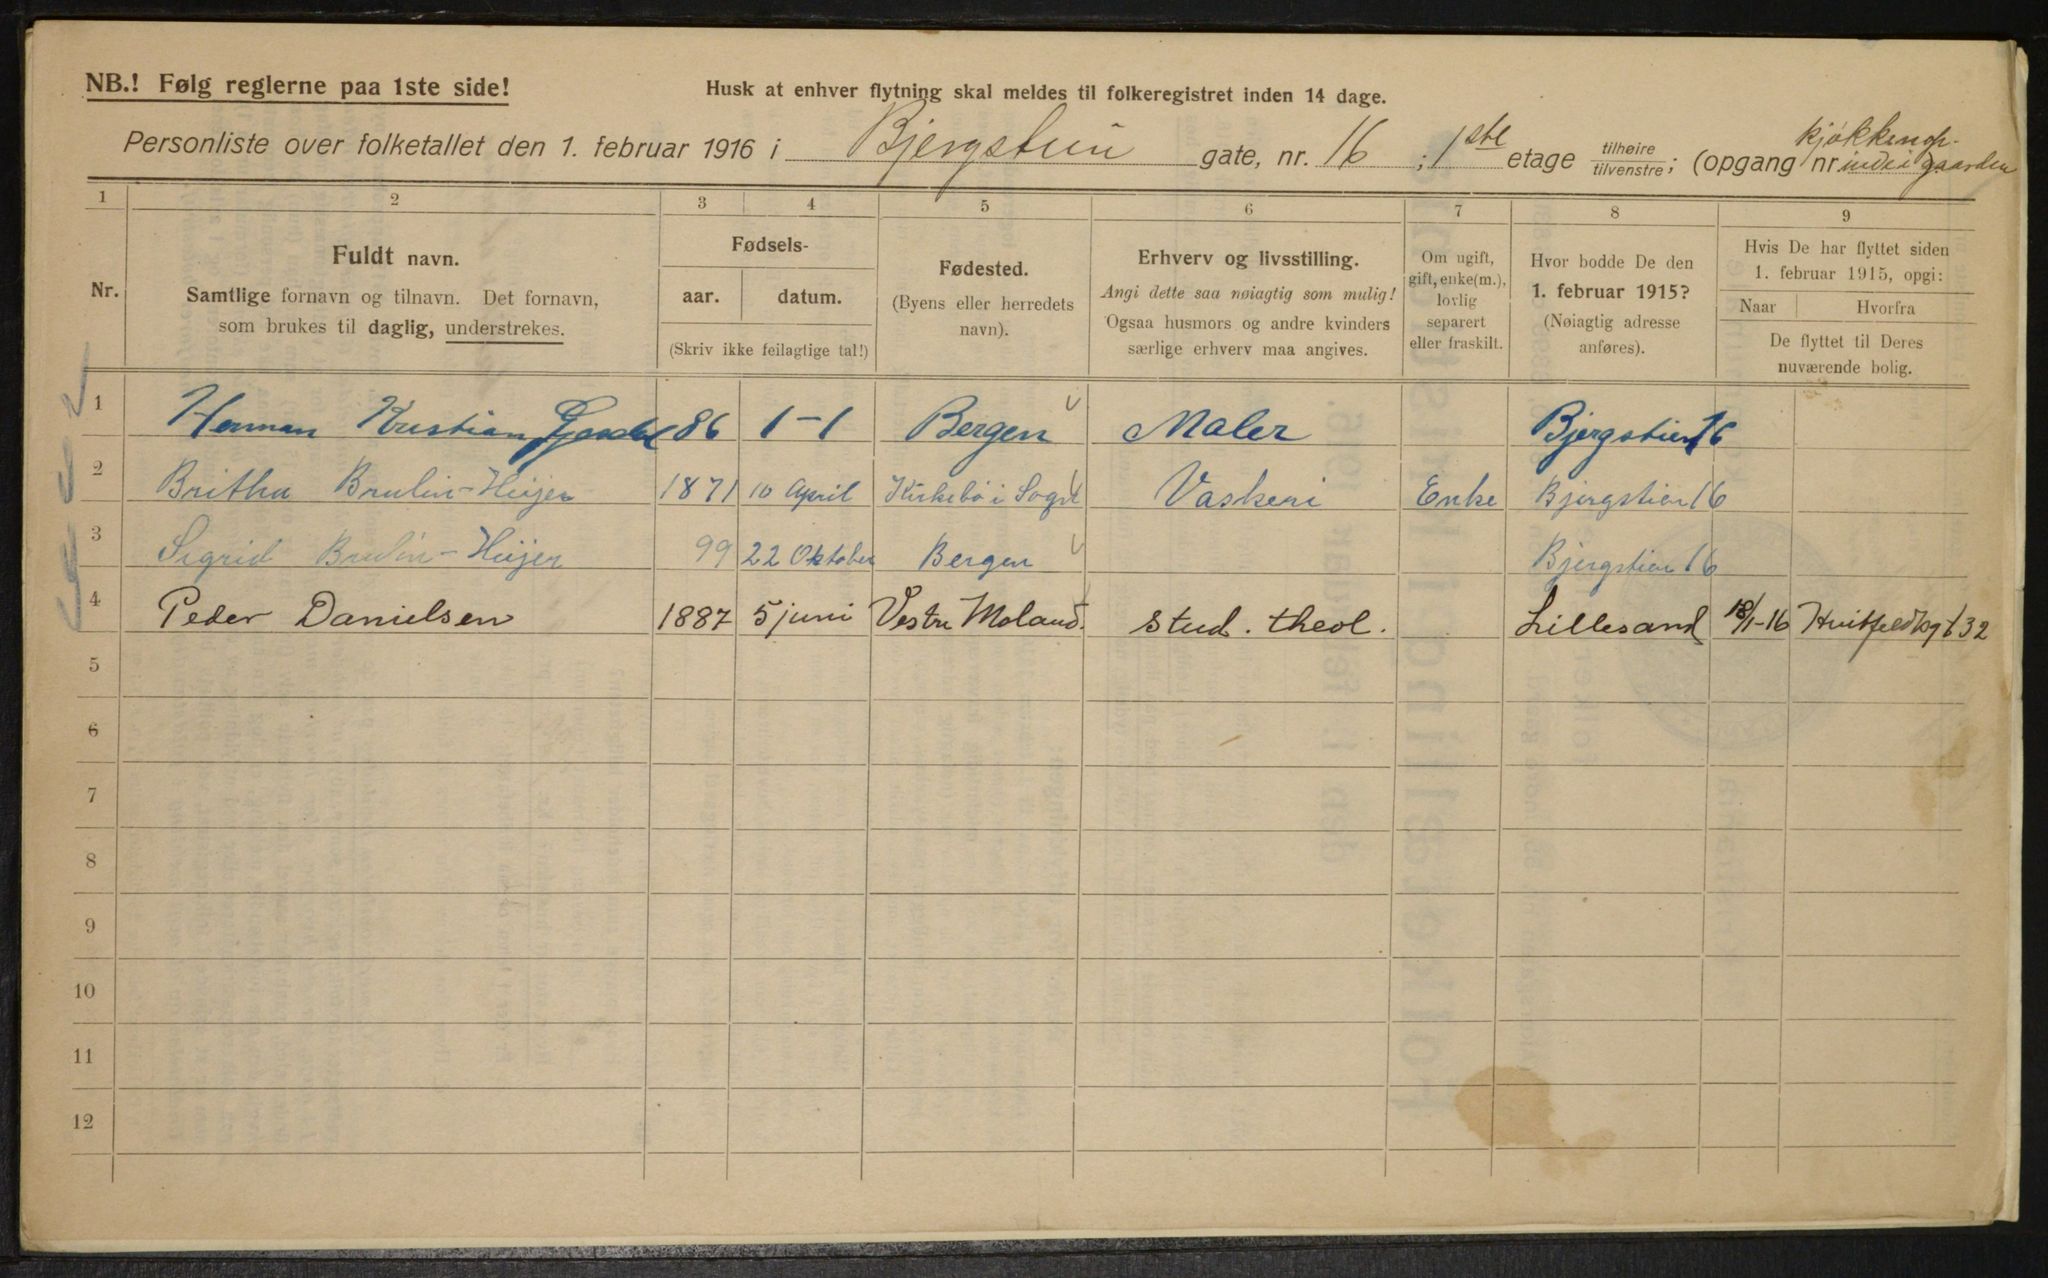 NB.! Følg reglerne paa 1ste side!
Husk at enhver flytning skal meldes til folkeregistret inden 14 dage.
Personliste over folketallet den 1. februar 1916 i Bjergstien gate, nr. 16 ; 1ste etage tilhøire/tilvenstre; (opgang nr. kjøkkenop- inde i gaarden
1 2 3 4 5 6 7 8 9
Nr.
Fuldt navn.
Samtlige fornavn og tilnavn. Det fornavn,
som brukes til daglig, understrekes.
Fødsels-
aar. datum.
(Skriv ikke feilagtige tal!)
Fødested.
(Byens eller herredets
navn).
Erhverv og livsstilling.
Angi dette saa nøiagtig som mulig!
Ogsaa husmors og andre kvinders
særlige erhverv maa angives.
Om ugift,
gift, enke(m.),
lovlig
separert
eller fraskilt.
Hvor bodde De den
1. februar 1915?
(Nøiagtig adresse
anføres).
Hvis De har flyttet siden
1. februar 1915, opgi:
Naar Hvorfra
De flyttet til Deres
nuværende bolig.
1 Herman Kristian 86 1-1 Bergen Maler Bjergstien 16
2 Britha Brulin-Heijer 1871 10 April Kirkebø i Sogn Vaskeri Enke Bjergstien 16
3 Sigrid Brulin-Heijer 99 22 Oktober Bergen Bjergstien 16
4 Peder Danielsen 1887 5 juni Vestre Moland. stud. theol. Lillesand 18/1-16 Hvitfeldtsgt 32
5
6
7
8
9
10
11
12